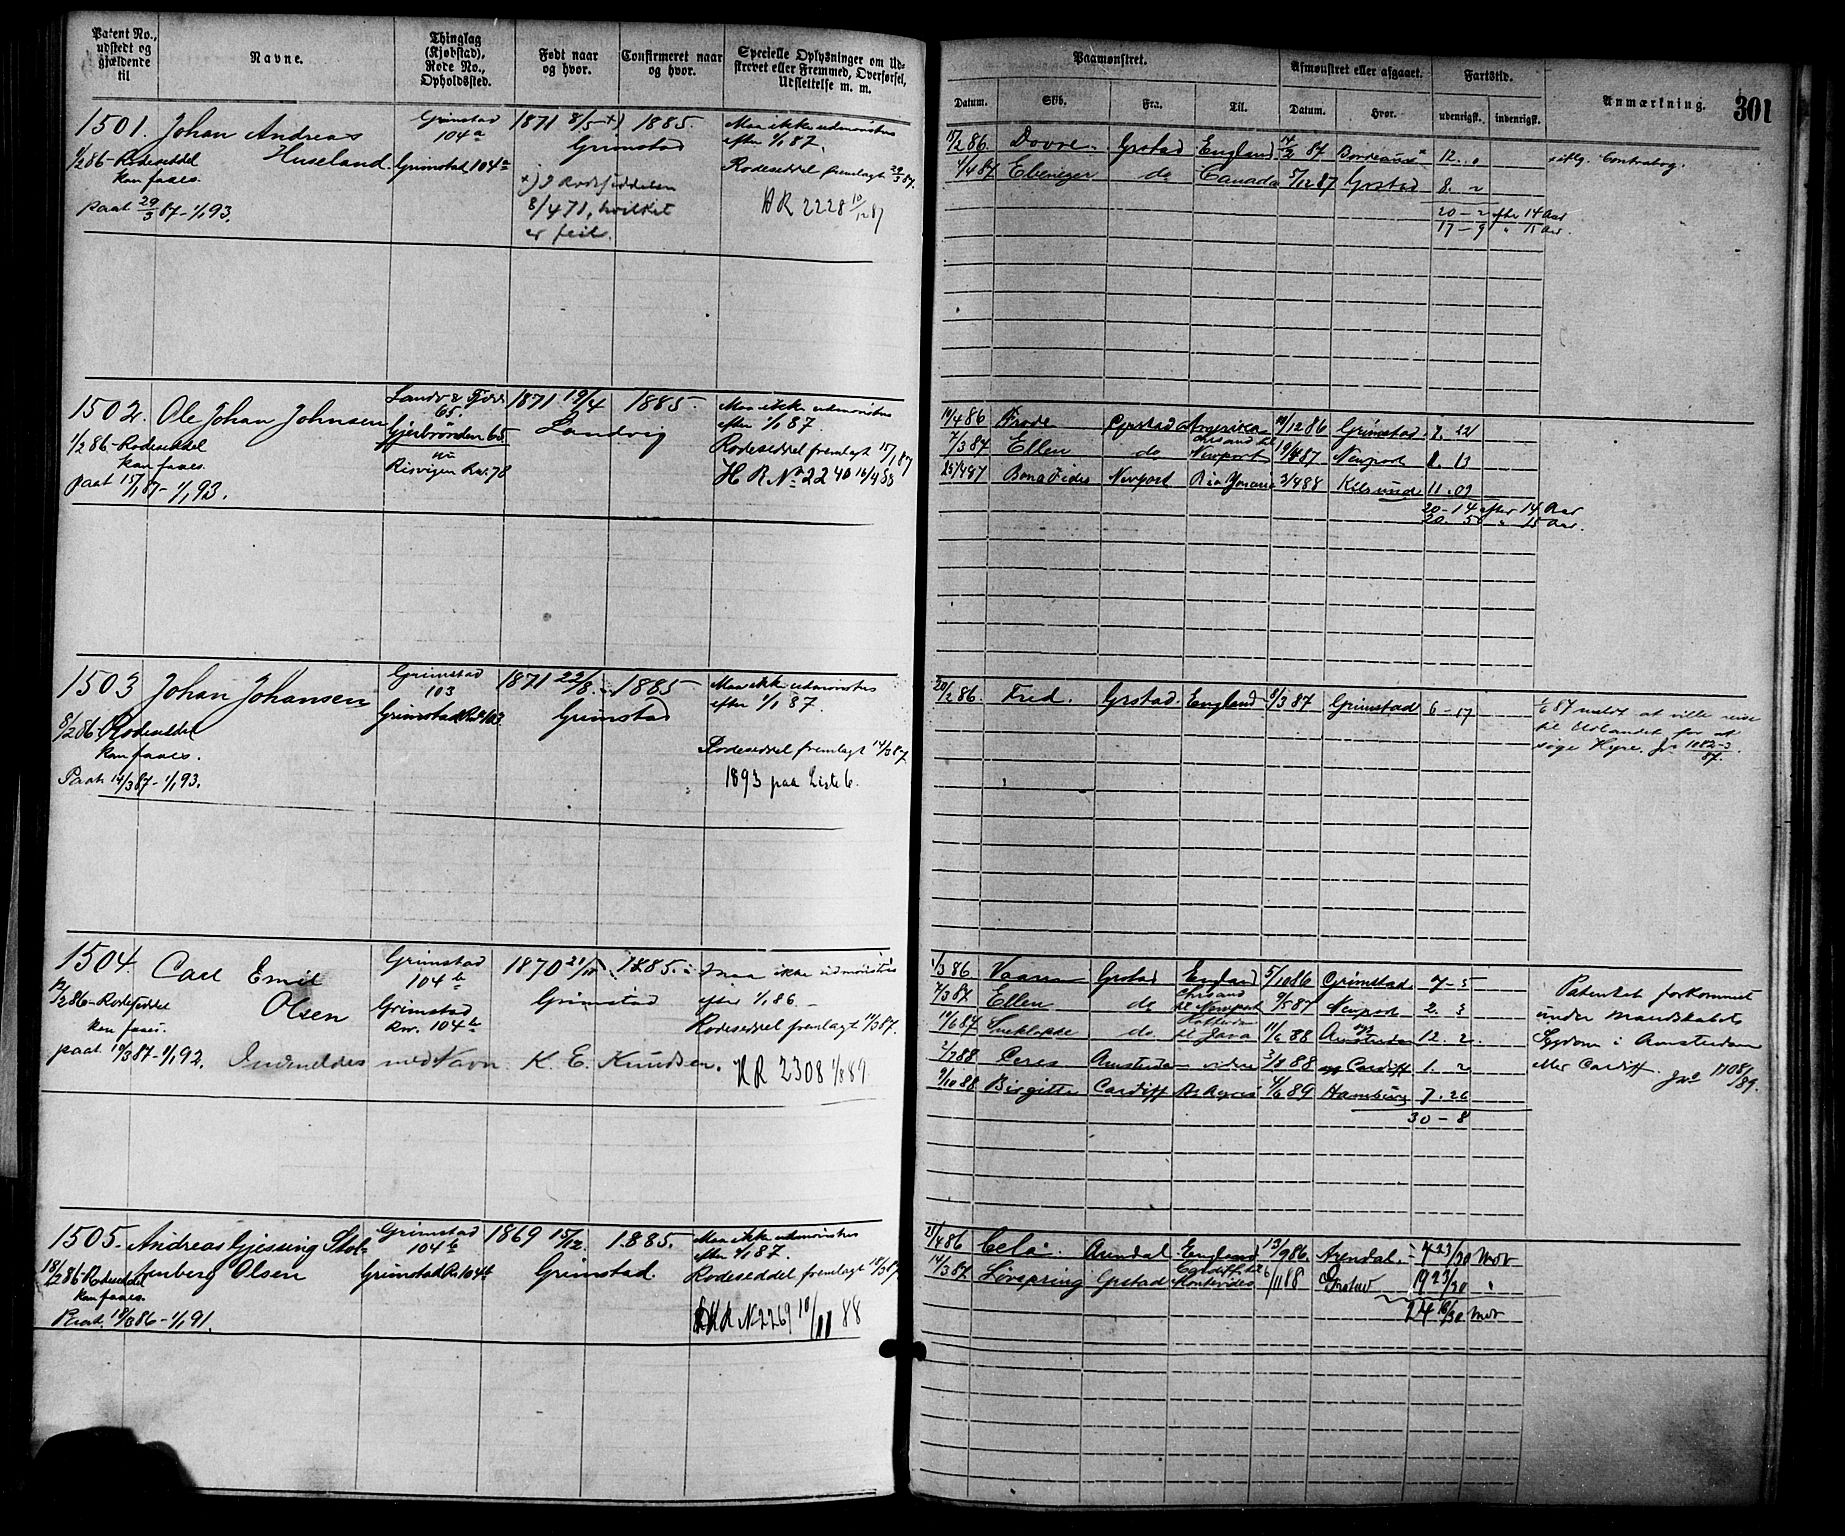 Patent No., udstedt og gjældende til
Navne.
Thinglag (Kjøbstad), Rode No., Opholdssted.
Født naar og hvor.
Confirmeret naar og hvor.
Specielle Oplysninger om Udskrevet eller Fremmed, Overførsel, Udslettelse m. m.
Paamønstret.
Datum. Skib. Fra. Til.
Afmønstret eller afgaaet.
Datum. Hvor.
Fartstid.
udenrigsk. indenrigsk.
Anmærkning.
301
1501. Johan Andreas Huseland.
1/2 86 - Rodeseddel
kan faaes.
paat 29/3 87 - 1/1 93.
Grimstad 104a
Grimstad 104a
1871 8/5 x)
Grimstad
x) I Rodeseddelen
8/4 71, hvilket
er feil.
1885.
Maa ikke udmønstres
efter 1/1 87.
Rodeseddel fremlagt 29/3 87.
HR 2228 10/12 87
15/2 86. Dovre Grstad England 14/2 87 Bordeaux 12. "
4/4 87 Ebenezer do Canada 5/12 87 Grstad 8. 2
20 - 2 efter 14 Aar
17 - 9 " 15 Aar.
1502. Ole Johan Johnsen
1/2 86 - Rodeseddel
kan faaes.
paat 15/1 87 - 1/1 93.
65.
65
nu
Risvigen Rn. 78
1871 19/4
Landvig
1885.
Maa ikke udmønstres
efter 1/1 87.
Rodeseddel fremlagt 15/1 87
HR No 2240 16/4 88
10/4 86 Frode Grstad America 10/12 86 Grimstad 7. 22
7/3 87 Ellen do Chrsand til Newport 19/4 87 Newport 1. 13
25/4 87 Bona Fides Newport Rio 3/4 88 Kilsund 11. 09
20 - 14 efter 14 Aar
20 5 " 15 Aar.
1503 Johan Johansen
8/2 86. Rodeseddel
kan faaes.
Paat. 14/3 87 - 1/1 93.
Grimstad
103
Grimstad Rd 103
1871 22/8.
Grimstad
1885
Maa ikke udmønstres
efter 1/1 87.
Rodeseddel fremlagt 14/3 87.
1893 paa Liste 6.
20/2 86. Fred. Grstad. England 8/3 87 Grimstad 6 - 17
87 meldt at ville reise
til Udlandet for at
søge Hyre. Jr 1082-3/87.
1504. Carl Emil Olsen
12/2 86 - Rodeseddel
kan faaes.
paat 10/3 87 - 1/1 92.
Indmeldes med Navn K. E. Knudsen.
Grimstad
104b
Grimstad
Rn. 104b
1870
Grimstad
1885.
Maa ikke udmønstres
efter 1/1 86 -
Rodeseddel fremlagt 10/3 87.
HR 2308 1/8 89
1/3 86 Vaaren Grstad England 5/10 86 Grimstad 7 - 5
7/3 87 Ellen do Chrsand til Newport 9/5 87 Newport 2. 3
10/6 87 do Rotterdam til Java 11/6 88 Amsterdam 12. 2
2/7 88 Ceres Amsterdam videre 3/8 88 Cardiff 1. 2
9/10 88 Birgitte Cardiff B. Ayres 4/6 89 Hamburg 7. 26
30 - 8
Patentet forkommet
under Mandskabets
Sygdom i Amsterdam
eller Cardiff. Jr 1108/89.
1505. Andreas Gjessing Stoltenberg Olsen
18/2 86 - Rodeseddel
kan faaes.
Paat. 18/3 86 - 1/1 91.
Grimstad
104b
Grimstad Rn 104b
1869 15/12.
Grimstad.
1885.
Maa ikke udmønstres
efter 1/1 87.
Rodeseddel fremlagt 18/3 87
HR No 2269 10/11 88
21/4 86 Arendal England 13/9 86. Arendal. 4 23/30 Mdr
14/3 87 Grstad Cardiff til Montevideo 6/11 88 Grstad 19 23/30 "
24 16/30 Mdr